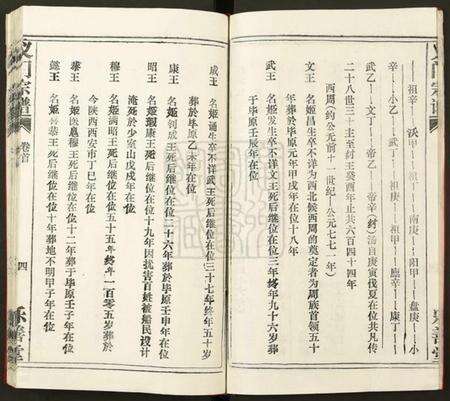 义门宗谱
祖辛——沃甲——祖丁——南庚——阳甲——盘庚——小
辛——小乙——武丁——祖庚——祖甲——廪辛——康丁——
武乙——文丁——帝乙——帝辛(纣)汤自庚寅伐夏在位共凡传
二十八世三十主至纣王癸酉年止共六百四十四年
西周(约公元前十一世纪—公元七七一年)
文王 名姬昌生卒不详为西北候西周的奠定者为周族首领五十
年葬于毕原元年甲戌年在位十八年
武王 名姬发生卒不详文王死后继位在位三年终年九十六岁葬
于毕原壬辰年在位
成王 名姬诵生卒不详武王死后继位在位三十七年终年五十岁
葬於毕原乙未年在位
康王 名姬钊成王死后继位在位二十六年葬於毕原壬申年在位
昭王 名姬瑕康王死后继位在位十九年因扰害百姓被船民设计
淹死於少室山戊戌年在位
穆王 名姬满昭王死后继位在位五十五年终年一百零五岁葬於
今陕西西安市丁巳年在位
恭王 名姬扈穆王死后继位在位十二年葬于毕原壬子年在位
懿王 名姬囏恭王死后继位在位十年葬地不明甲子年在位
义门宗谱
卷首
四
乐善堂
乐善堂